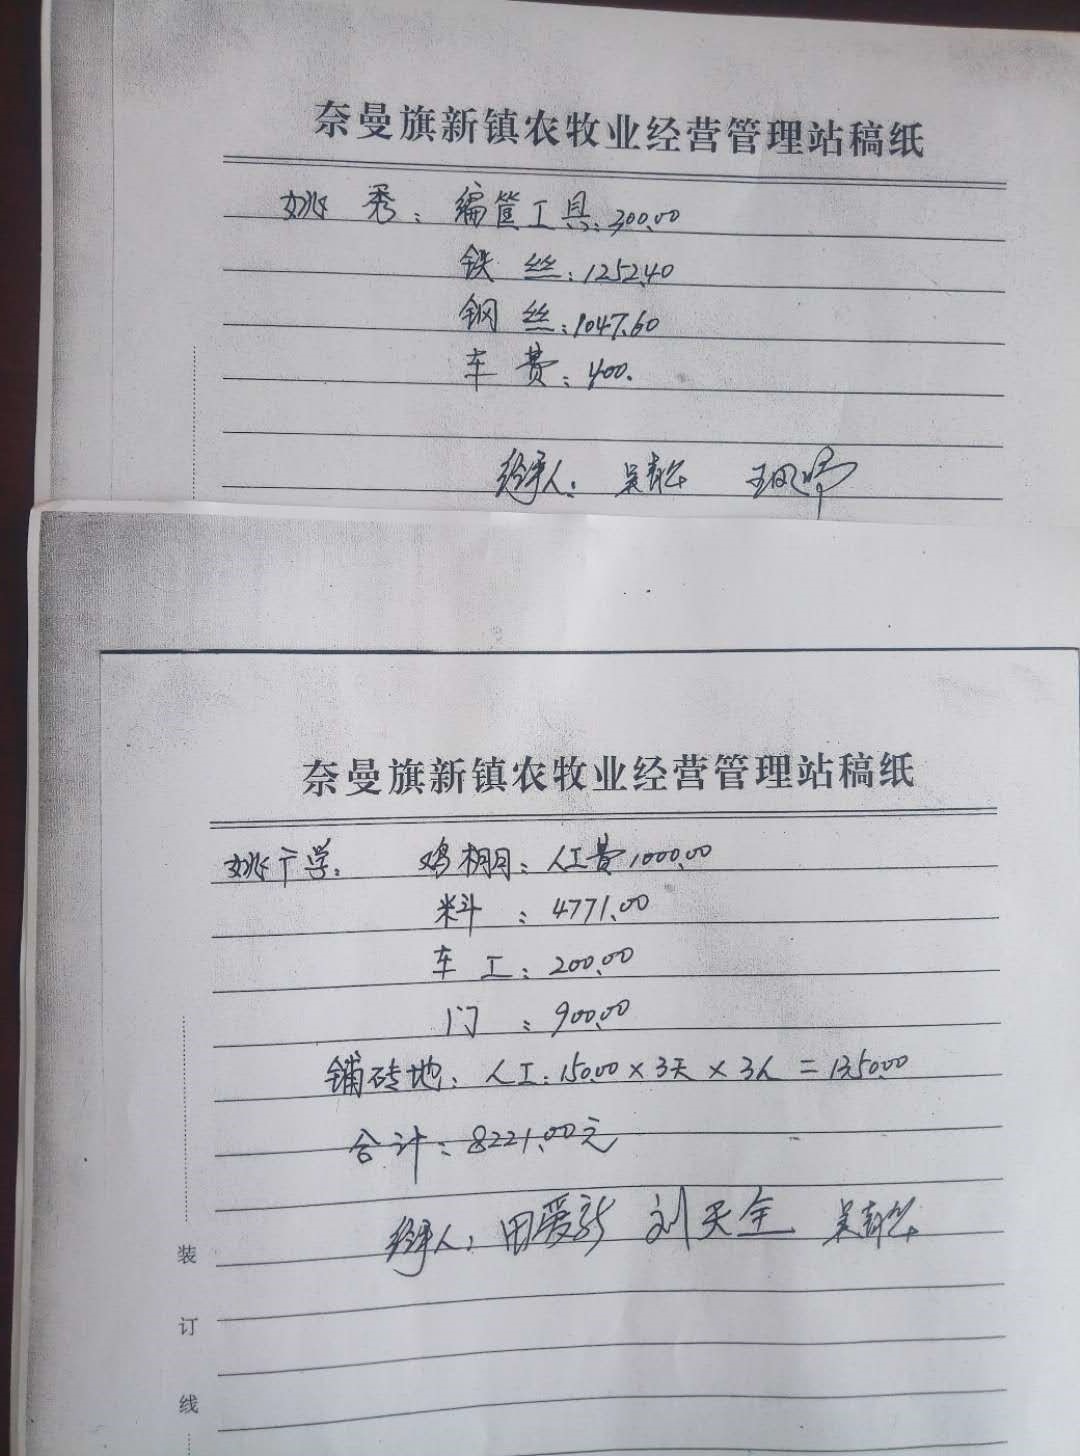 奈曼旗新镇农牧业经营管理站稿纸
姚 秀：编筐工具：300.00
铁 丝：1252.40
钢 丝：1047.60
车 费：400.
经手人：吴青松
奈曼旗新镇农牧业经营管理站稿纸
姚广学： 鸡棚：人工费1000.00
料 ：4771.00
车 工：200.00
门 ：900.00
铺砖地：人工：150.00×3天×3人＝1350.00
合计：8221.00元
经手人：田爱新 刘天全 吴青松
装
订
线